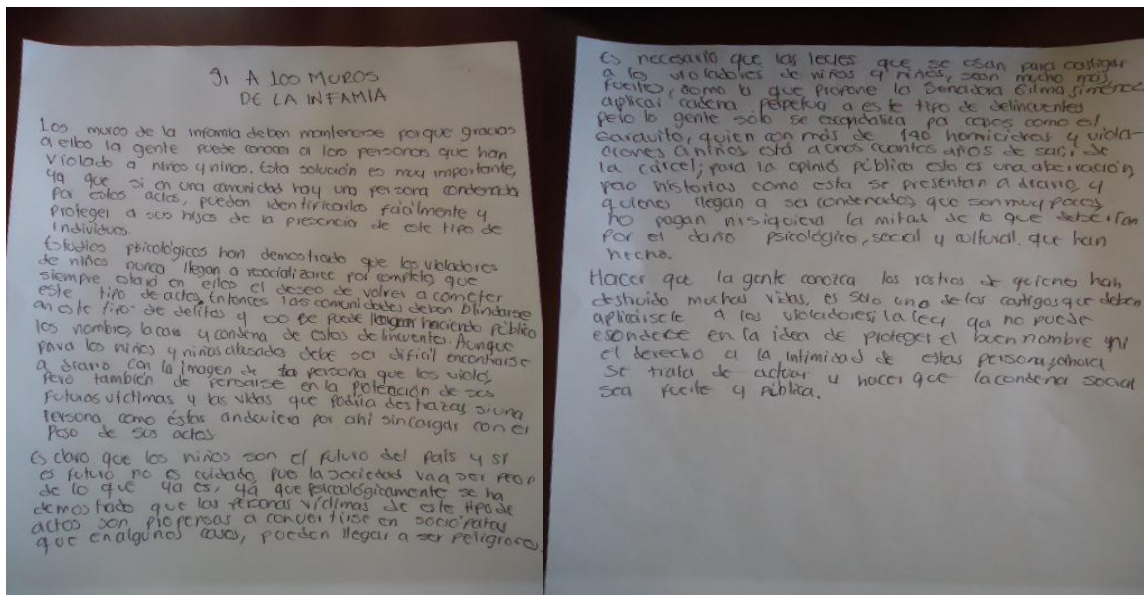 SI A LOS MUROS
DE LA INFAMIA
Los muros de la infamia deben mantenerse porque gracias
a ello la gente puede conocer a las personas que han
violado a niños y niñas. Esta solución es muy importante,
ya que si en una comunidad hay una persona condenada
por estos actos, pueden identificarlos fácilmente y
proteger a sus hijos de la presencia de este tipo de
individuos.
Estudios psicológicos han demostrado que los violadores
de niños nunca llegan a resocializarce por completo, que
siempre estará en ellos el deseo de volver a cometer
este tipo de actos. Entonces las comunidades deben blindarse
an este tipo de delitos y se puede haciendo público
los nombres, la cara y condena de estos delincuentes. Aunque
para los niños y niñas abusados debe ser difícil encontrarse
a diario con la imagen de la persona que los violó,
pero también de pensarse en la poteación de sus
futuras víctimas y las vidas que podría destrozar si una
persona como éstas anduviera por ahí sin cargar con el
peso de sus actos.
Es claro que los niños son el futuro del país y si
es futuro no es cuidado, pues la sociedad va a ser peor
de lo que ya es, ya que psicológicamente se ha
demostrado que las personas víctimas de este tipo de
actos son propensas a convertirse en sociópatas
que en algunos casos, pueden llegar a ser peligrosos.
Es necesario que las lecies que se usan para castigar
a los violadores de niñas y niños, sean mucho más
fuertes, como lo que propone la Senadora Gilma Jiménez
aplicar cadena perpetua a este tipo de delincuentes
pero la gente sólo se escandaliza por casos como el
Garavito, quien con más de 140 homicidios y viola-
ciones a niños está a unos cuantos años de salir de
la cárcel; para la opinió pública esto es una aberración,
pero historias como esta se presentan a diario y
quienes llegan a ser condenados, que son muy pocos,
no pagan ni siquiera la mitad de lo que deberían
por el daño psicológico, social y cultural que han
hecho.
Hacer que la gente conozca los rostros de quienes han
destruido muchas vidas, es solo uno de los castigos que deben
aplicarsele a los violadores, la ley ya no puede
esconderse en la idea de proteger el buen nombre ni
el derecho a la intimidad de estas personas, ahora
se trata de actuar y hacer que la condena social
sea fuerte y pública.